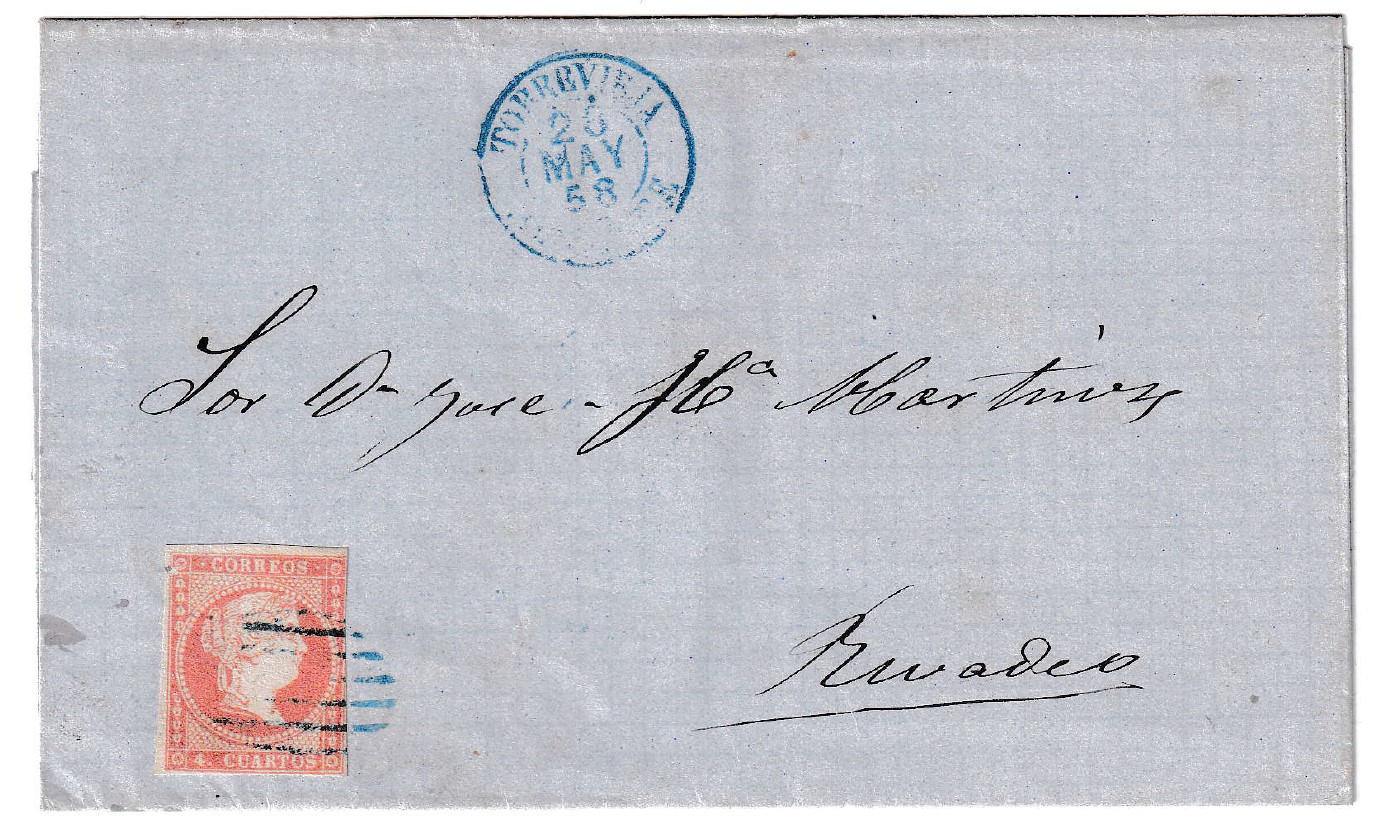 TORREVIEJA
26
MAY
58
Sor Dn Jose Ma Martinez
CORREOS
4 CUARTOS
Rivadeo